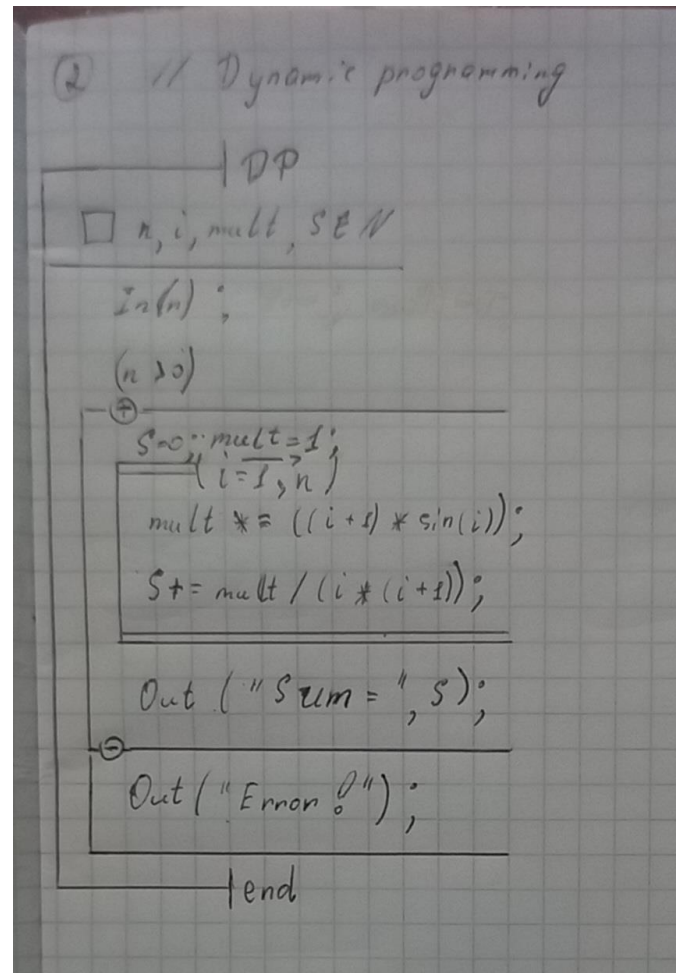 ② // Dynamic programming
DP
□ n, i, mult, S ∈ N
In(n) ;
(n > 0)
+
S=0; mult=1;
( i=1, n )
mult *= ((i+1) * sin(i));
S+= mult / (i * (i+1));
Out ("Sum = ", S);
-
Out ("Error!");
end